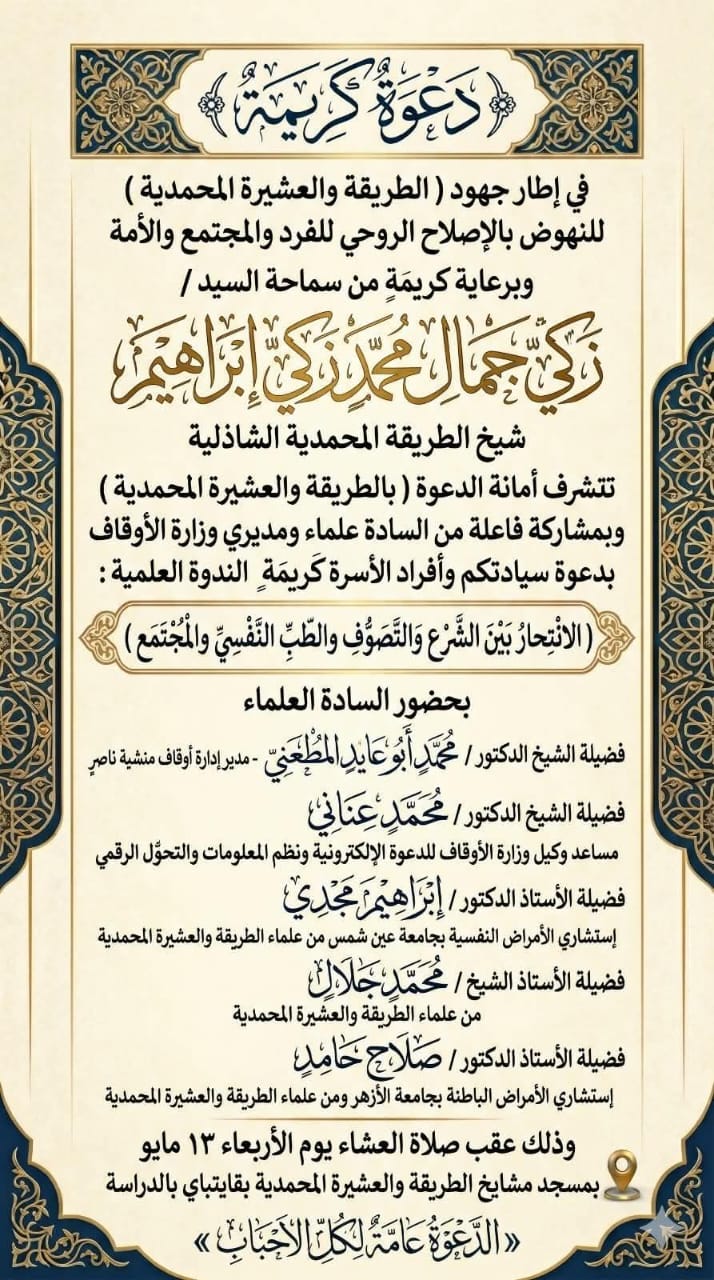 دَعْوَةٌ كَرِيمَةٌ
في إطار جهود ( الطريقة والعشيرة المحمدية )
للنهوض بالإصلاح الروحي للفرد والمجتمع والأمة
وبرعاية كريمَةٍ من سماحة السيد /
زَكِيّ جَمَالِ مُحَمَّدٍ زَكِيّ إِبْرَاهِيْمَ
شيخ الطريقة المحمدية الشاذلية
تتشرف أمانة الدعوة ( بالطريقة والعشيرة المحمدية )
وبمشاركة فاعلة من السادة علماء ومديري وزارة الأوقاف
بدعوة سيادتكم وأفراد الأسرة كَريمَةٍ الندوة العلمية :
( الانْتِحارُ بَيْنَ الشَّرْعِ وَالتَّصَوُّفِ والطّبِّ النَّفْسِيِّ والْمُجْتَمَع )
بحضور السادة العلماء
فضيلة الشيخ الدكتور / مُحَمَّدٍ أَبُو عَايِدٍ المُطْعَنِيّ - مدير إدارة أوقاف منشية ناصرٍ
فضيلة الشيخ الدكتور / مُحَمَّدٍ عِنَانِي
مساعد وكيل وزارة الأوقاف للدعوة الإلكترونية ونظم المعلومات والتحوُّل الرقمي
فضيلة الأستاذ الدكتور / إِبْرَاهِيْمَ مَجْدِي
إستشاري الأمراض النفسية بجامعة عين شمس من علماء الطريقة والعشيرة المحمدية
فضيلة الأستاذ الشيخ / مُحَمَّدٍ جَلَالٍ
من علماء الطريقة والعشيرة المحمدية
فضيلة الأستاذ الدكتور / صَلَاحِ حَامِدٍ
إستشاري الأمراض الباطنة بجامعة الأزهر ومن علماء الطريقة والعشيرة المحمدية
وذلك عقب صلاة العشاء يوم الأربعاء ١٣ مايو
بمسجد مشايخ الطريقة والعشيرة المحمدية بقايتباي بالدراسة
« الدَّعْوَةُ عَامَّةٌ لِكُلِّ الأَحْبَابِ »